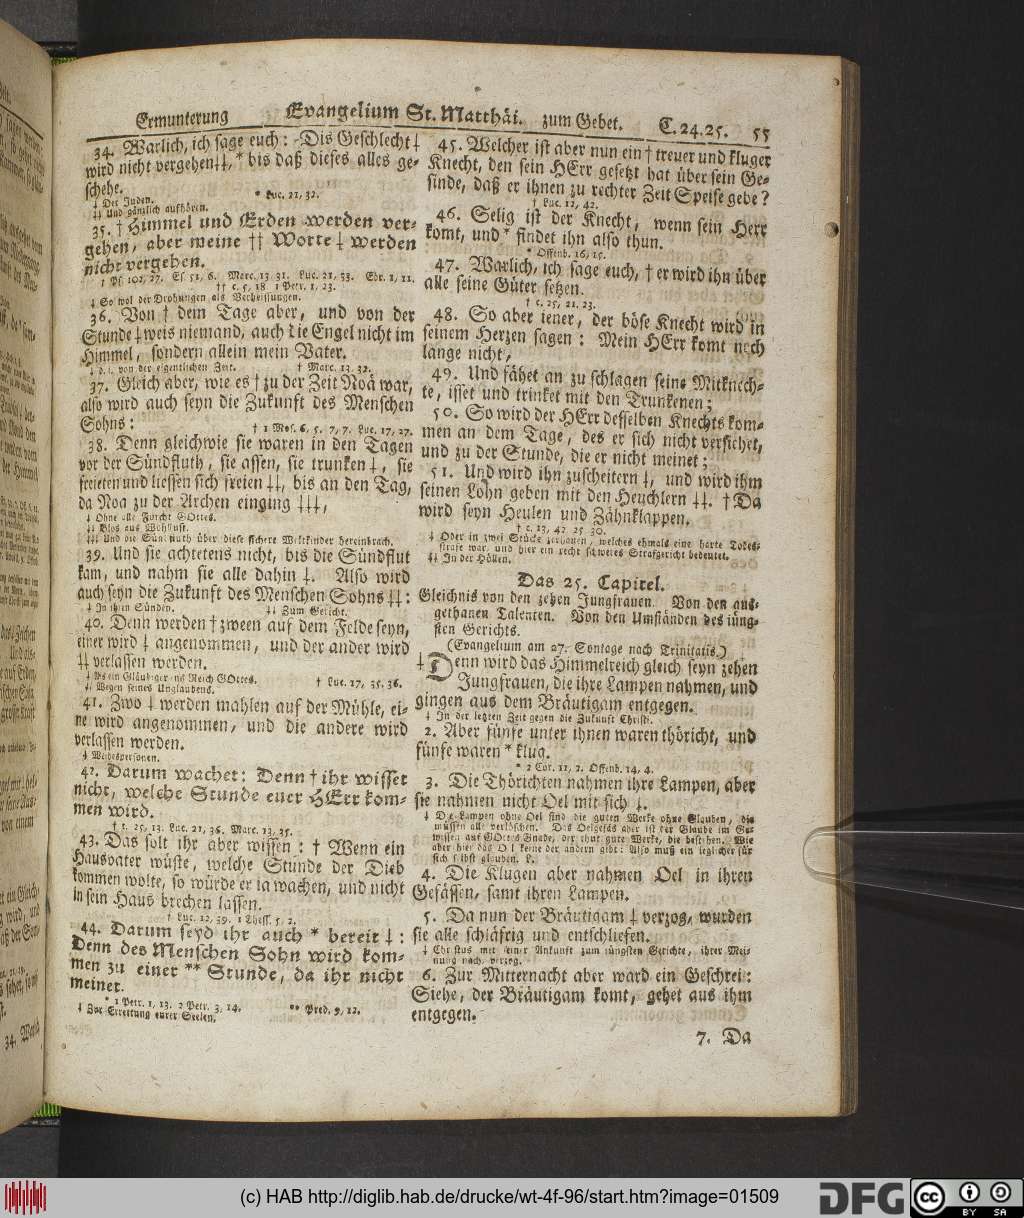 Ermunterung Evangelium St. Matthäi. zum Gebet. C. 24. 25. 55
34. Warlich, ich sage euch: Dis Geschlecht ‡
wird nicht vergehen‡‡, * bis daß dieses alles ge-
schehe. * Luc. 21, 32.
‡ Der Juden.
‡‡ Und gäntzlich aufhören.
35. † Himmel und Erden werden ver-
gehen, aber meine †† Worte ‡ werden
nicht vergehen.
† Ps. 102, 27. Es. 51, 6. Marc. 13. 31. Luc. 21, 33. Ebr. 1, 11.
†† c. 5, 18 1 Petr. 1, 23.
‡ So wol der Drohungen als Verheissungen.
36. Von † dem Tage aber, und von der
Stunde ‡ weis niemand, auch die Engel nicht im
Himmel, sondern allein mein Vater.
‡ d. i. von der eigentlichen Zeit. † Marc. 13. 32.
37. Gleich aber, wie es † zu der Zeit Noä war,
also wird auch seyn die Zukunft des Menschen
Sohns: † 1 Mos. 6, 5. 7, 7. Luc. 17, 27.
38. Denn gleichwie sie waren in den Tagen
vor der Sündfluth, sie assen, sie trunken ‡, sie
freieten und liessen sich freien ‡‡, bis an den Tag,
da Noa zu der Archen einging ‡‡‡,
‡ Ohne alle Furcht GOttes.
‡‡ Blos aus Wohllust.
‡‡‡ Und die Sündfluth über diese sichere Weltkinder hereinbrach.
39. Und sie achtetens nicht, bis die Sündflut
kam, und nahm sie alle dahin ‡. Also wird
auch seyn die Zukunft des Menschen Sohns ‡‡:
‡ In ihren Sünden. ‡‡ Zum Gericht.
40. Denn werden † zween auf dem Felde seyn,
einer wird ‡ angenommen, und der ander wird
‡‡ verlassen werden.
‡ Als ein Gläubiger ins Reich GOttes. † Luc. 17, 35. 36.
‡‡ Wegen seines Unglaubens.
41. Zwo ‡ werden mahlen auf der Mühle, ei-
ne wird angenommen, und die andere wird
verlassen werden.
‡ Weibespersonen.
42. Darum wachet: Denn † ihr wisset
nicht, welche Stunde euer HErr kom-
men wird.
† c. 25, 13. Luc. 21, 36. Marc. 13, 35.
43. Das solt ihr aber wissen: † Wenn ein
Hausvater wüste, welche Stunde der Dieb
kommen wolte, so würde er ia wachen, und nicht
in sein Haus brechen lassen.
† Luc. 12, 39. 1 Thess. 5, 2.
44. Darum seyd ihr auch * bereit ‡:
Denn des Menschen Sohn wird kom-
men zu einer ** Stunde, da ihr nicht
meinet.
* 1 Petr. 1, 13. 2 Petr. 3, 14. ** Pred. 9, 12.
‡ Zur Errettung eurer Seelen.
45. Welcher ist aber nun ein † treuer und kluger
Knecht, den sein HErr gesetzt hat über sein Ge-
sinde, daß er ihnen zu rechter Zeit Speise gebe?
† Luc. 12, 42.
46. Selig ist der Knecht, wenn sein Herr
komt, und * findet ihn also thun.
* Offenb. 16, 15.
47. Warlich, ich sage euch, † er wird ihn über
alle seine Güter setzen.
† c. 25, 21. 23.
48. So aber iener, der böse Knecht wird in
seinem Herzen sagen: Mein HErr komt noch
lange nicht,
49. Und fähet an zu schlagen seine Mitknech-
te, isset und trinket mit den Trunkenen;
50. So wird der HErr desselben Knechts kom-
men an dem Tage, des er sich nicht versihet,
und zu der Stunde, die er nicht meinet;
51. Und wird ihn zuscheitern ‡, und wird ihm
seinen Lohn geben mit den Heuchlern ‡‡. † Da
wird seyn Heulen und Zähnklappen.
† c. 13, 42. 25 30.
‡ Oder in zwei Stücke zerhauen, welches ehmals eine harte Todes-
strafe war, und hier ein recht schweres Strafgericht bedeutet.
‡‡ In der Höllen.
Das 25. Capitel.
Gleichnis von den zehen Jungfrauen. Von den aus-
gethanen Talenten. Von den Umständen des iüng-
sten Gerichts.
(Evangelium am 27. Sontage nach Trinitatis.)
‡ Denn wird das Himmelreich gleich seyn zehen
Jungfrauen, die ihre Lampen nahmen, und
gingen aus dem Bräutigam entgegen.
‡ In der letzten Zeit gegen die Zukunft Christi.
2. Aber fünfe unter ihnen waren thöricht, und
fünfe waren * klug.
* 2 Cor. 11, 2. Offenb. 14, 4.
3. Die Thörichten nahmen ihre Lampen, aber
sie nahmen nicht Oel mit sich ‡.
‡ Die Lampen ohne Oel sind die guten Werke ohne Glauben, die
müssen alle verlöschen. Das Oelgefäs aber ist der Glaube im Ge-
wissen auf GOttes Gnade, der thut gute Werke, die bestehen. Wie
aber hier das Oel keine der andern gibt: Also muß ein ieglicher für
sich selbst glauben. L.
4. Die Klugen aber nahmen Oel in ihren
Gefässen, samt ihren Lampen.
5. Da nun der Bräutigam ‡ verzog, wurden
sie alle schläfrig und entschliefen.
‡ Christus mit seiner Ankunft zum iüngsten Gerichte, ihrer Mei-
nung nach, verzog.
6. Zur Mitternacht aber ward ein Geschrei:
Siehe, der Bräutigam komt, gehet aus ihm
entgegen.
7. Da
(c) HAB http://diglib.hab.de/drucke/wt-4f-96/start.htm?image=01509
DFG
cc BY SA